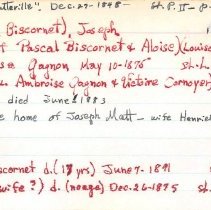 tterville". Dec. 27-1848 - St. P. II - p.
Biscornet), Joseph
f Pascal Biscornet & Aloise) (Louise
Gagnon May 10-1875 St. L.
Ambroise Gagnon & Victoire Cornoyer
died June 1883
e home of Joseph Matt- wife Henrie
scornet d. (17 yrs) June 7-1871
wife ?) d. (no age) Dec. 26-1875 St.